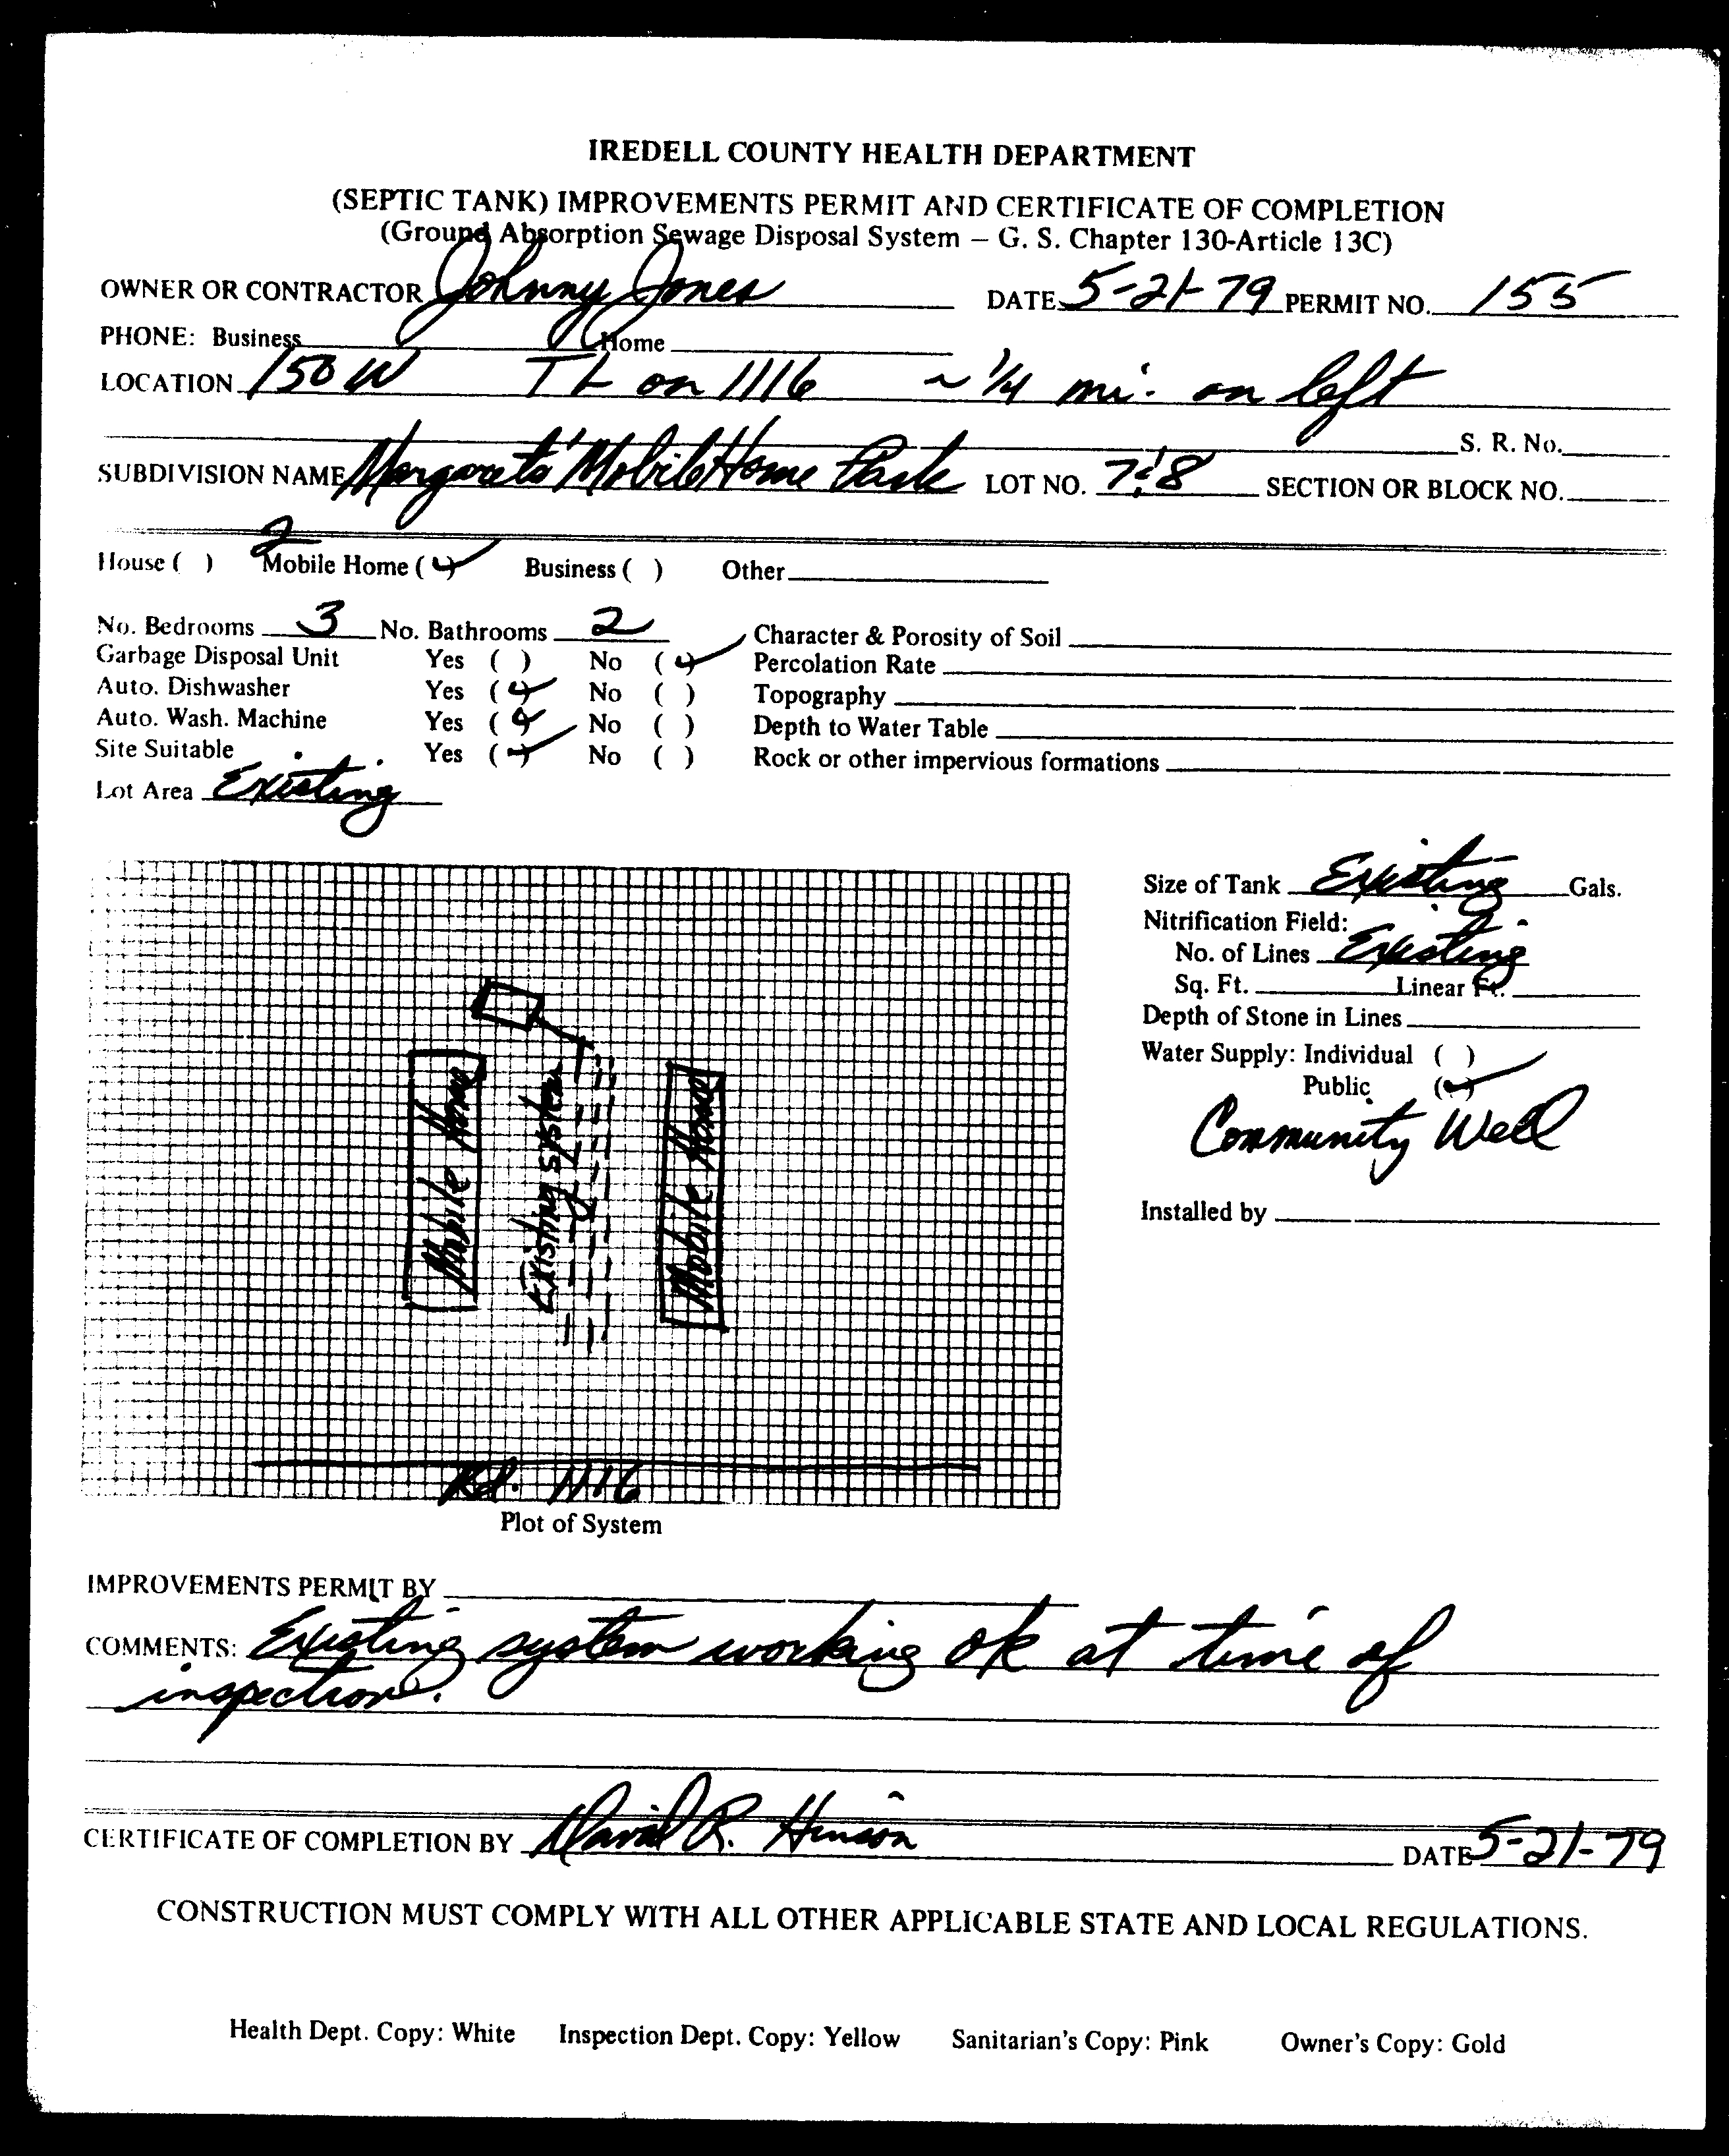 IREDELL COUNTY HEALTH DEPARTMENT
(SEPTIC TANK) IMPROVEMENTS PERMIT AND CERTIFICATE OF COMPLETION
(Ground Absorption Sewage Disposal System – G. S. Chapter 130-Article 13C)
OWNER OR CONTRACTOR Johnny Jones DATE 5-21-79 PERMIT NO. 155
PHONE: Business Home
LOCATION 150 W TL on 1116 ~ 1/4 mi. on left
S. R. No.
SUBDIVISION NAME Margarets' Mobile Home Park LOT NO. 7 & 8 SECTION OR BLOCK NO.
House ( ) 2 Mobile Home (✓) Business ( ) Other
No. Bedrooms 3 No. Bathrooms 2 Character & Porosity of Soil
Garbage Disposal Unit Yes ( ) No (✓) Percolation Rate
Auto. Dishwasher Yes (✓) No ( ) Topography
Auto. Wash. Machine Yes (✓) No ( ) Depth to Water Table
Site Suitable Yes (✓) No ( ) Rock or other impervious formations
Lot Area Existing
Size of Tank Existing Gals.
Nitrification Field:
No. of Lines Existing
Sq. Ft. Linear Ft.
Depth of Stone in Lines
Water Supply: Individual ( )
Public (✓)
Community Well
Installed by
Mobile Home
Existing system
Mobile Home
Rd. 1116
Plot of System
IMPROVEMENTS PERMIT BY
COMMENTS: Existing system working ok at time of
inspection.
CERTIFICATE OF COMPLETION BY David R. Hinson DATE 5-21-79
CONSTRUCTION MUST COMPLY WITH ALL OTHER APPLICABLE STATE AND LOCAL REGULATIONS.
Health Dept. Copy: White Inspection Dept. Copy: Yellow Sanitarian's Copy: Pink Owner's Copy: Gold